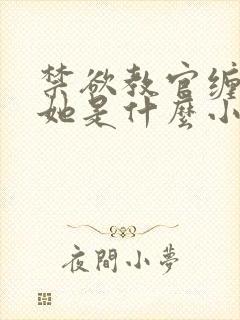 禁欲教官缠
她是什麽小
夜間小夢